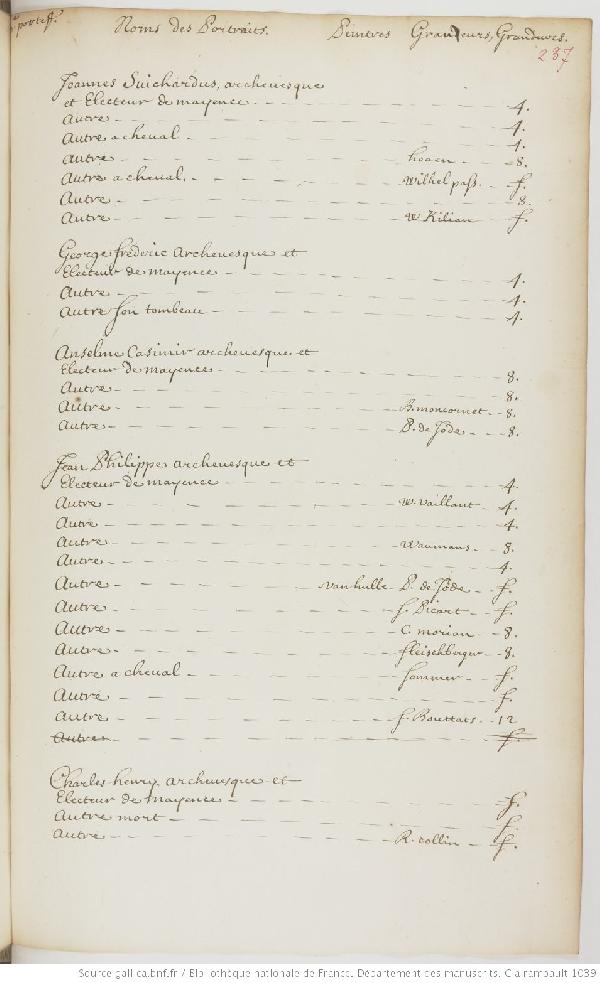 portef. Noms des Portraits. Peintres Graveurs, Grandeurs.
237
Joannes Suichardus, archeuesque
et Electeur de mayence - 4.
Autre - 4.
Autre a cheual - 4.
Autre - hogen - 8.
Autre a cheual. - Wilhel pass. - f.
Autre - 8.
Autre - W. Kilian - f.
George frederic Archeuesque et
Electeur de mayence - 4.
Autre - 4.
Autre son tombeau - 4.
Anselme Casimir archeuesque et
Electeur de mayence - 8.
Autre - 8.
Autre - B. moncornet - 8.
Autre - P. de Jode - 8.
Jean Philippe archeuesque et
Electeur de mayence - 4.
Autre - W. vaillant - 4.
Autre - 4.
Autre - Waumans - 8.
Autre - 4.
Autre - vanhulle P. de Jode - f.
Autre - f. Picart - f.
Autre - C. morian - 8.
Autre - fleischberger - 8.
Autre a cheual - sommer - f.
Autre - f.
Autre - f. Bouttats - 12
Autre - f.
Charles henry archeuesque et
Electeur de mayence - f.
Autre mort - f.
Autre - R. collin - f.
Source gallica.bnf.fr / Bibliothèque nationale de France. Département des manuscrits. Clairambault 1039